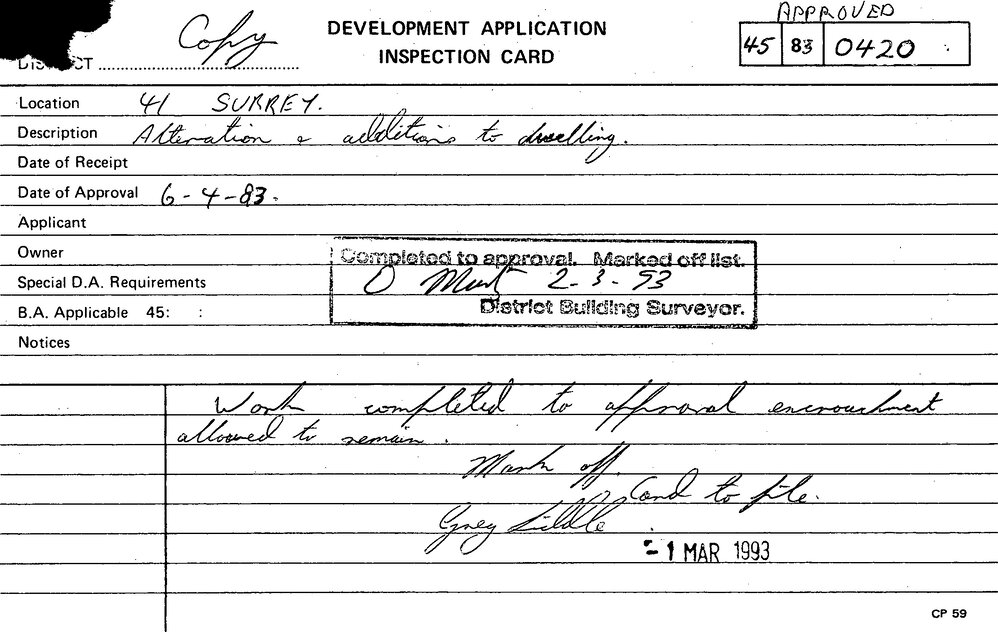 Copy
DEVELOPMENT APPLICATION
INSPECTION CARD
APPROVED
45 83 0420
DISTRICT
Location 41 SURREY.
Description Alteration & additions to dwelling.
Date of Receipt
Date of Approval 6-4-83.
Applicant
Owner
Completed to approval. Marked off list.
Special D.A. Requirements
2-3-93
District Building Surveyor.
B.A. Applicable 45: :
Notices
Work completed to approval encrouchment
allowed to remain.
Mark off.
Card to file.
Greg Liddle
- 1 MAR 1993
CP 59